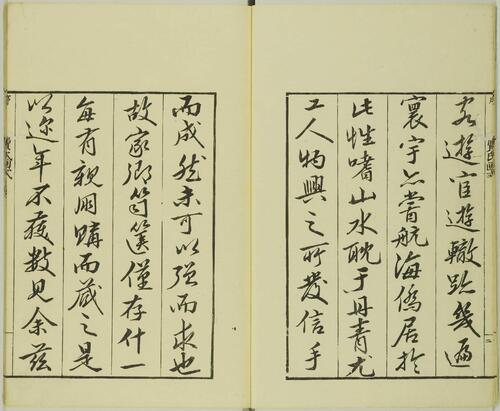 客遊宦遊轍跡幾遍
寰宇亦嘗航海僑居於
此性嗜山水耽于丹青尤
工人物興之所發信手
而成然未可以强而求也
故家鄉笥篋僅存什一
每有親朋購而藏之是
以迩年不獲數見余茲